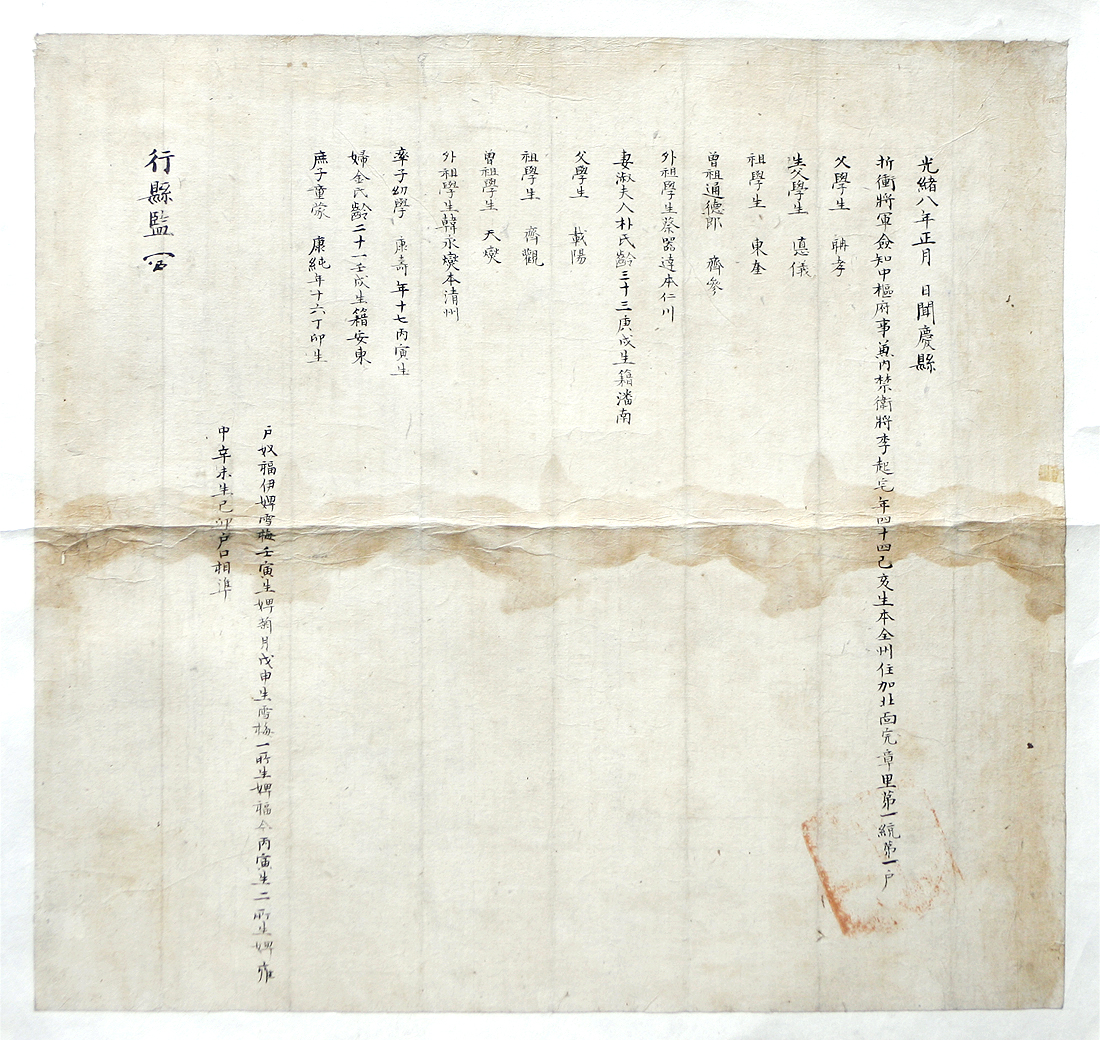 光緖八年正月　日聞慶縣
折衝將軍僉知中樞府事兼內禁衛將李起宅年四十四己亥生本全州住加北面完章里第一統第一戶
父學生　聃孝
生父學生　悳儀
祖學生　東奎
曾祖通德郎　齊參
外祖學生蔡器達本仁川
妻淑夫人朴氏齡三十三庚戌生籍潘南
父學生　載陽
祖學生　齊觀
曾祖學生　天燮
外祖學生韓永燮本淸州
率子幼學　康壽年十七丙寅生
婦金氏齡二十一壬戌生籍安東
庶子童蒙　康純年十六丁卯生
戶奴福伊婢雪梅壬寅生婢菊月戊申生雪梅一所生婢福令丙寅生二所生婢雍
中辛未生己卯戶口相準
行縣監